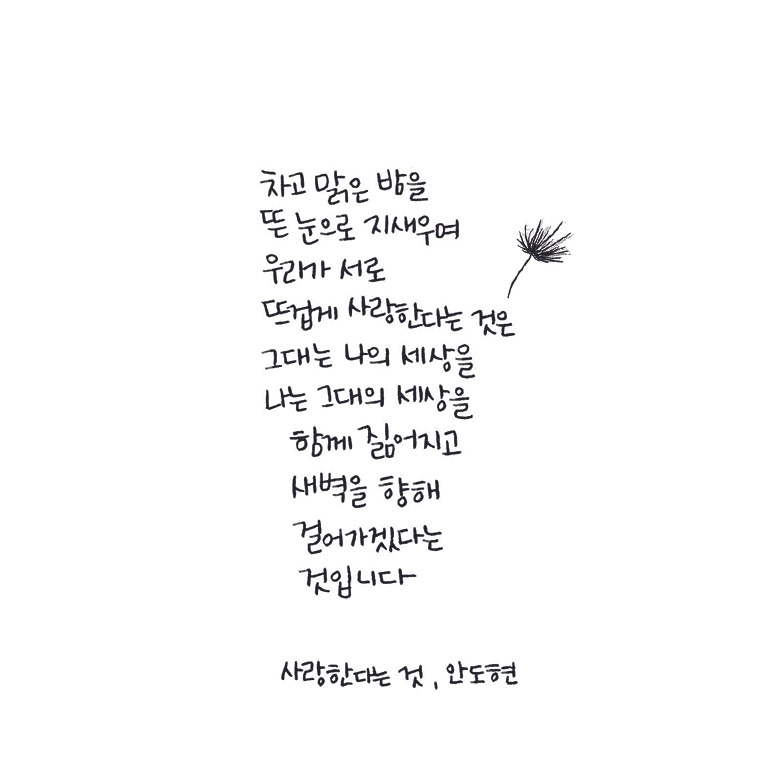 차고 맑은 밤을
뜬 눈으로 지새우며
우리가 서로
뜨겁게 사랑한다는 것은
그대는 나의 세상을
나는 그대의 세상을
함께 짊어지고
새벽을 향해
걸어가겠다는
것입니다
사랑한다는 것, 안도현